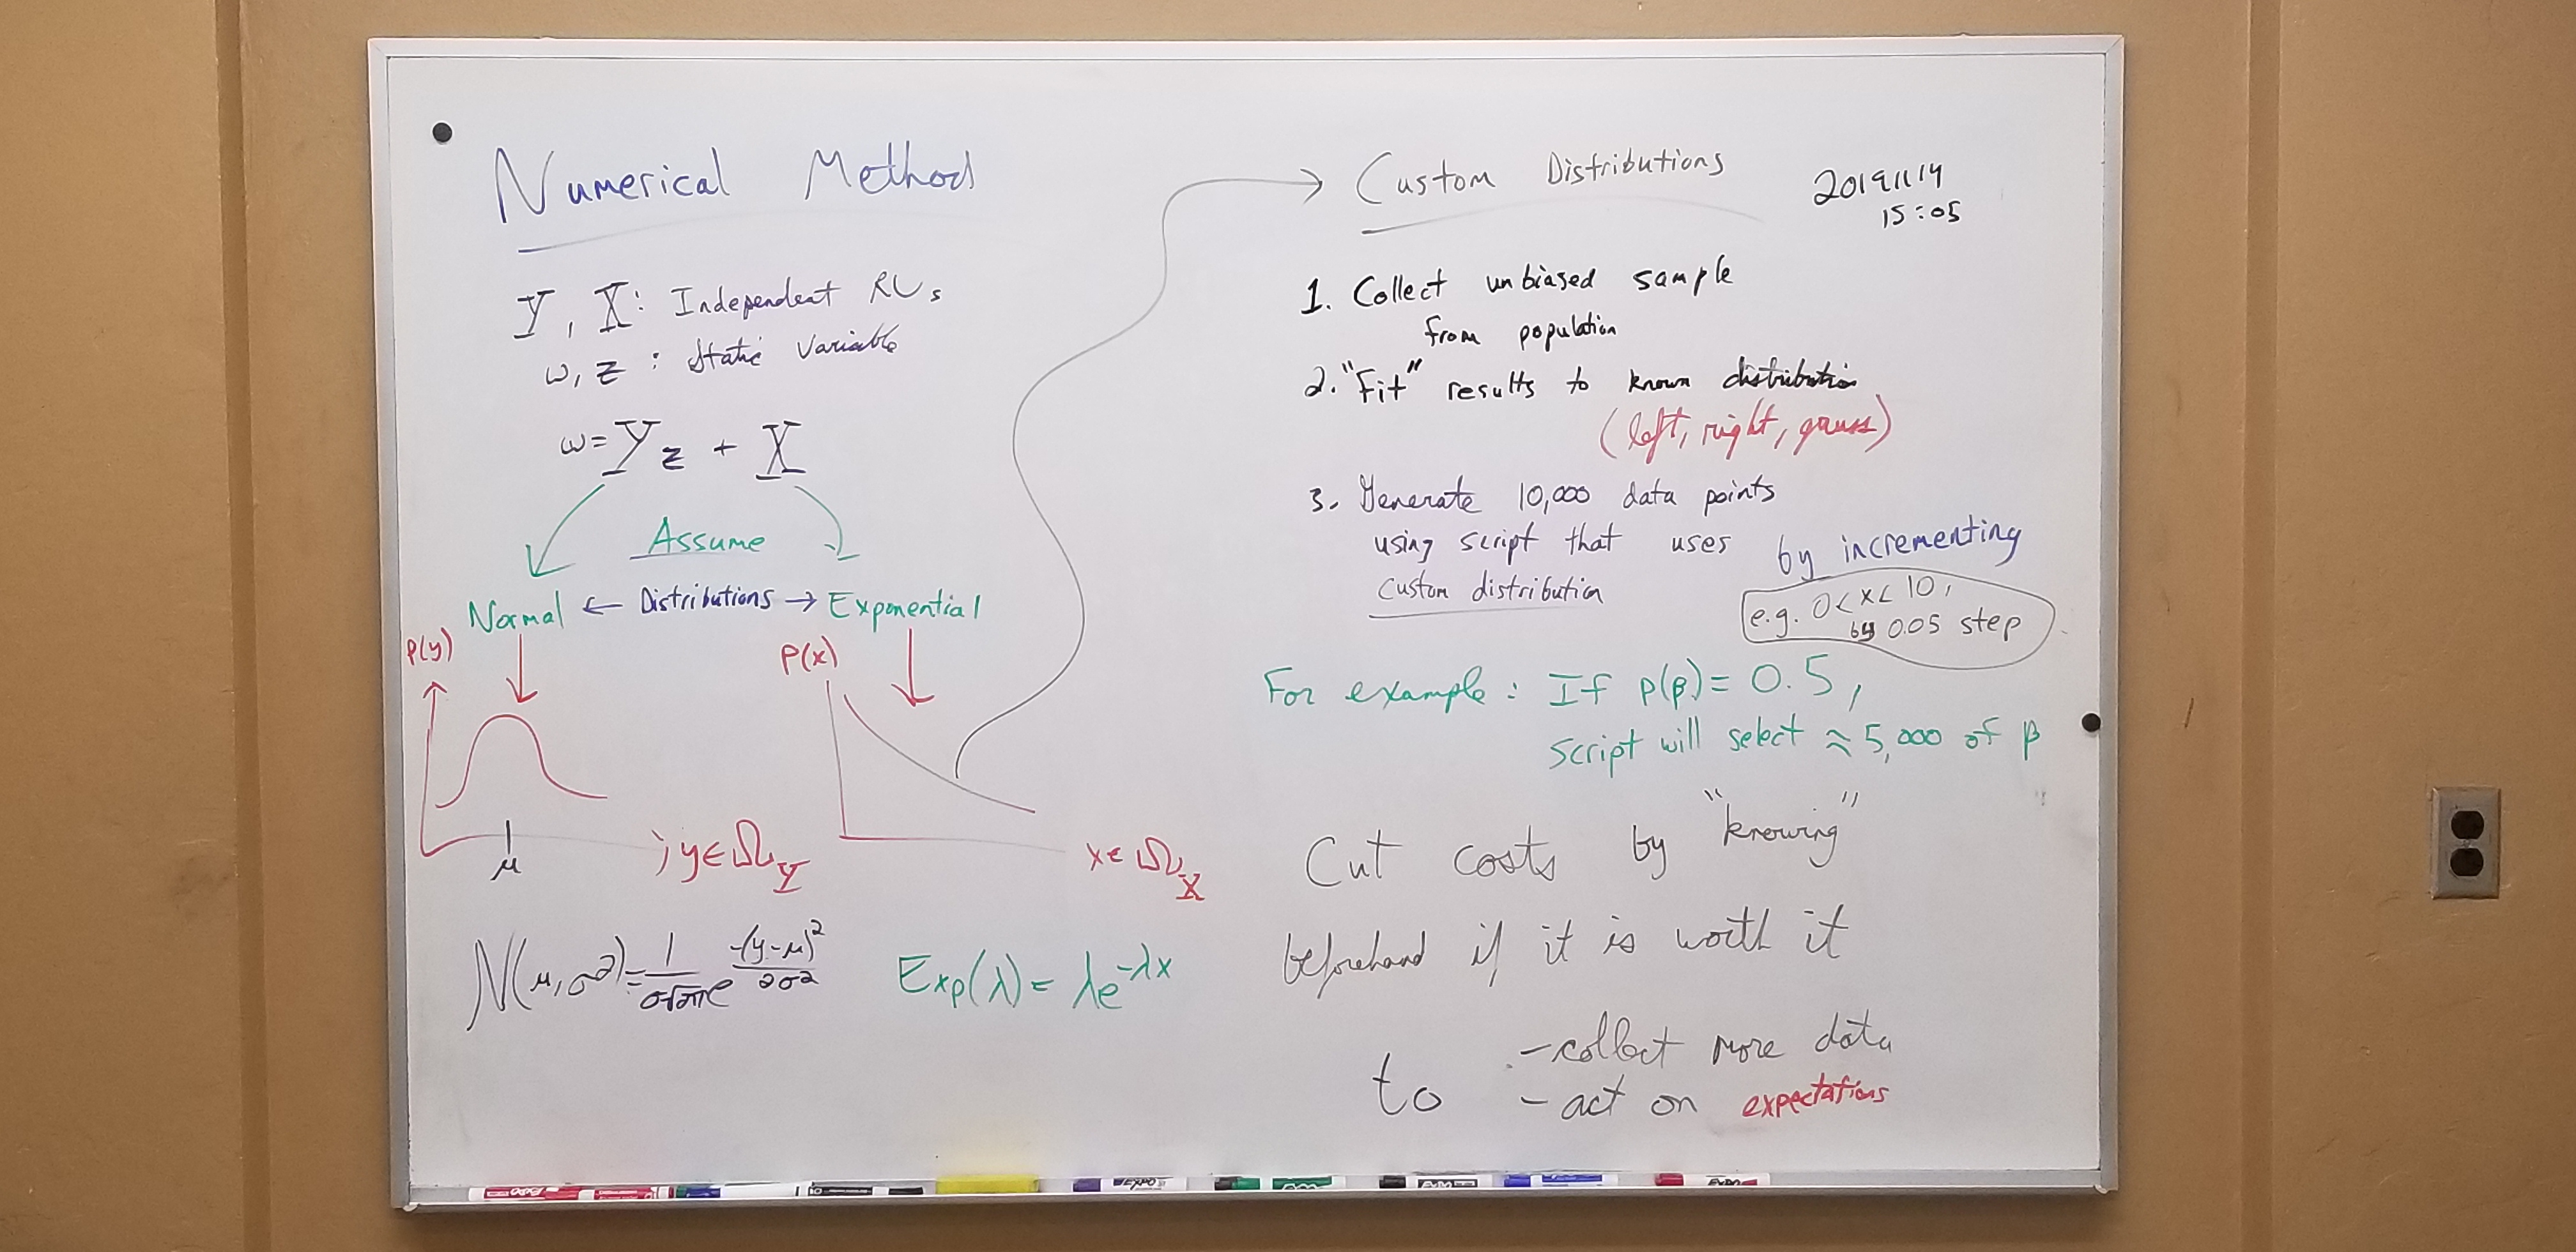 Numerical Method
Y, X: Independent RVs
ω, z: Static Variable
ω=Yz + X
Assume
Normal ← Distributions → Exponential
P(y)
μ
; y∈Ω_Y
P(x)
x∈Ω_X
N(μ,σ²)=1/(σ√2π) e^(-(y-μ)²/2σ²)
Exp(λ)= λe^(-λx)
Custom Distributions
20191114
15:05
1. Collect unbiased sample
from population
2. "Fit" results to known distribution
(left, right, gauss)
3. Generate 10,000 data points
using script that uses
custom distribution
by incrementing
e.g. 0<x<10,
by 0.05 step
For example: If p(β)= 0.5,
script will select ≈ 5,000 of β
Cut costs by "knowing"
beforehand if it is worth it
to
-collect more data
-act on expectations
EXPO